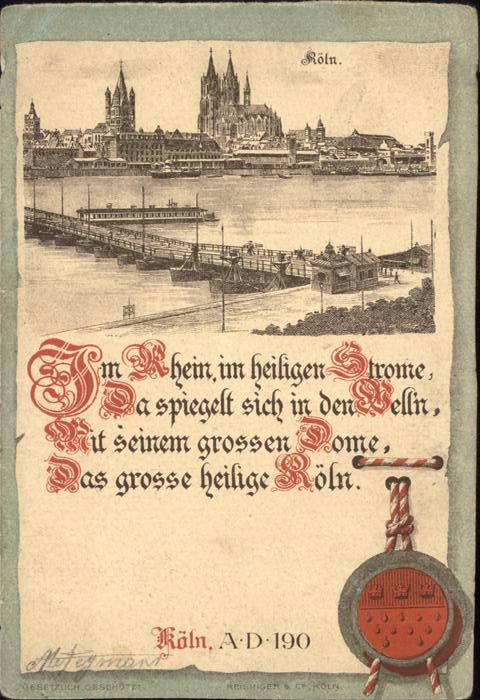 Köln.
Im Rhein, im heiligen Strome,
Da spiegelt sich in den Welln,
Mit seinem grossen Dome,
Das grosse heilige Köln.
Köln, A·D·190
GESETZLICH GESCHÜTZT.
REISINGER & Cº, KÖLN.